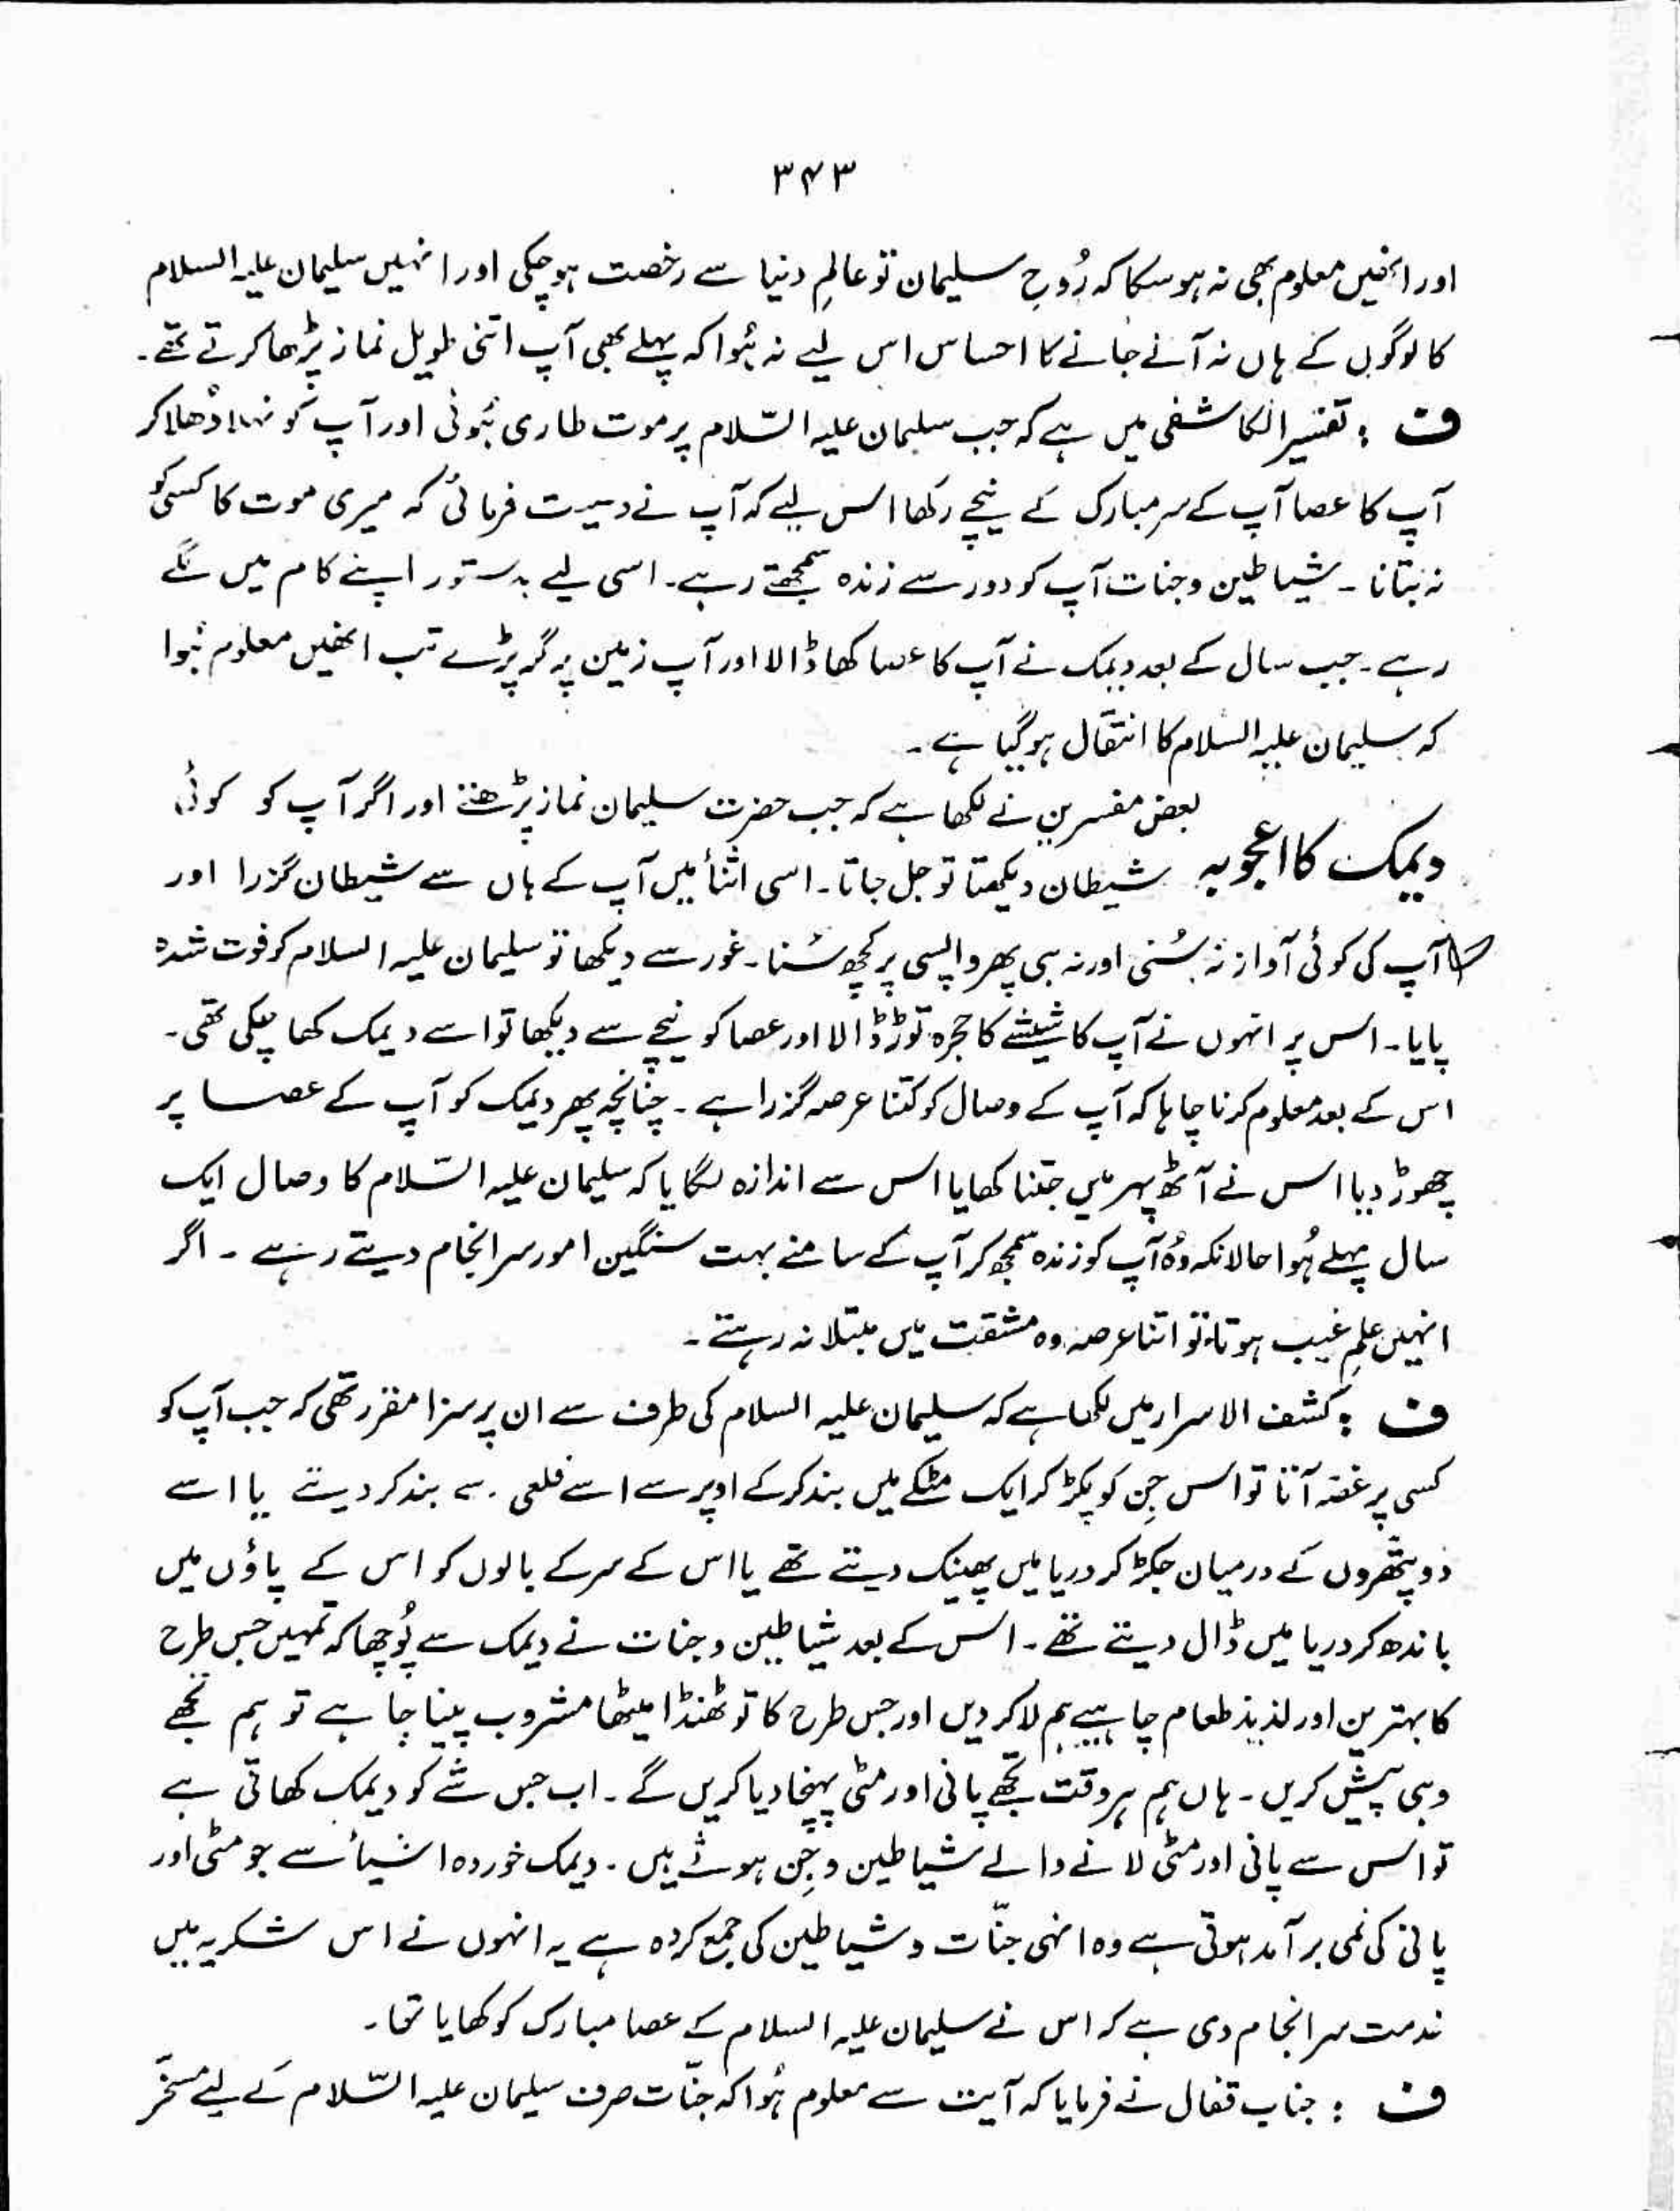 ۳۴۳
اور انھیں معلوم بھی نہ ہوسکا کہ رُوحِ سلیمان تو عالمِ دنیا سے رخصت ہوچکی اور انہیں سلیمان علیہ السلام
کا لوگوں کے ہاں نہ آنے جانے کا احساس اس لیے نہ ہُوا کہ پہلے بھی آپ اتنی طویل نماز پڑھا کرتے تھے۔
ف : تفسیر الکاشفی میں ہے کہ جب سلیمان علیہ السّلام پر موت طاری ہُوئی اور آپ کو نہلا دُھلا کر
آپ کا عصا آپ کے سر مبارک کے نیچے رکھا اس لیے کہ آپ نے وصیت فرمائی کہ میری موت کا کسی کو
نہ بتانا ۔ شیاطین و جنات آپ کو دور سے زندہ سمجھتے رہے۔ اسی لیے بدستور اپنے کام میں لگے
رہے۔ جب سال کے بعد دیمک نے آپ کا عصا کھا ڈالا اور آپ زمین پہ گر پڑے تب انھیں معلوم ہُوا
کہ سلیمان علیہ السلام کا انتقال ہوگیا ہے ۔
دیمک کا اعجوبہ
بعض مفسرین نے لکھا ہے کہ جب حضرت سلیمان نماز پڑھتے اور اگر آپ کو کوئی
شیطان دیکھتا تو جل جاتا۔ اسی اثنأ میں آپ کے ہاں سے شیطان گزرا اور
آپ کی کوئی آواز نہ سُنی اور نہ ہی پھر واپسی پر کچھ سُنا۔ غور سے دیکھا تو سلیمان علیہ السلام کو فوت شدہ
پایا۔ اس پر انہوں نے آپ کا شیشے کا حجرہ توڑ ڈالا اور عصا کو نیچے سے دیکھا تو اسے دیمک کھا چکی تھی۔
اس کے بعد معلوم کرنا چاہا کہ آپ کے وصال کو کتنا عرصہ گزرا ہے ۔ چنانچہ پھر دیمک کو آپ کے عصا پر
چھوڑ دیا اس نے آٹھ پہر میں جتنا کھایا اس سے اندازہ لگایا کہ سلیمان علیہ السّلام کا وصال ایک
سال پہلے ہُوا حالانکہ وُہ آپ کو زندہ سمجھ کر آپ کے سامنے بہت سنگین امور سرانجام دیتے رہے ۔ اگر
انہیں علمِ غیب ہوتا تو اتنا عرصہ وہ مشقت میں مبتلا نہ رہتے ۔
ف : کشف الاسرار میں لکھا ہے کہ سلیمان علیہ السلام کی طرف سے ان پر سزا مقرر تھی کہ جب آپ کو
کسی پر غصّہ آتا تو اس جِن کو پکڑ کر ایک مٹکے میں بند کر کے اوپر سے اسے قلعی سے بند کر دیتے یا اسے
دو پتّھروں کے درمیان جکڑ کر دریا میں پھینک دیتے تھے یا اس کے سر کے بالوں کو اس کے پاؤں میں
باندھ کر دریا میں ڈال دیتے تھے ۔ اس کے بعد شیاطین و جنات نے دیمک سے پُوچھا کہ تمہیں جس طرح
کا بہترین اور لذیذ طعام چاہیے ہم لا کر دیں اور جس طرح کا تو ٹھنڈا میٹھا مشروب پینا چاہے تو ہم تجھے
وہی پیش کریں ۔ ہاں ہم ہر وقت تجھے پانی اور مٹی پہنچا دیا کریں گے ۔ اب جس شے کو دیمک کھاتی ہے
تو اس سے پانی اور مٹی لانے والے شیاطین و جِن ہوتے ہیں ۔ دیمک خوردہ اشیأ سے جو مٹی اور
پانی کی نمی برآمد ہوتی ہے وہ انہی جنّات و شیاطین کی جمع کردہ ہے یہ انہوں نے اس شکریہ میں
خدمت سرانجام دی ہے کہ اس نے سلیمان علیہ السلام کے عصا مبارک کو کھایا تھا ۔
ف : جناب قفال نے فرمایا کہ آیت سے معلوم ہُوا کہ جنّات صرف سلیمان علیہ السّلام کے لیے مسخّر